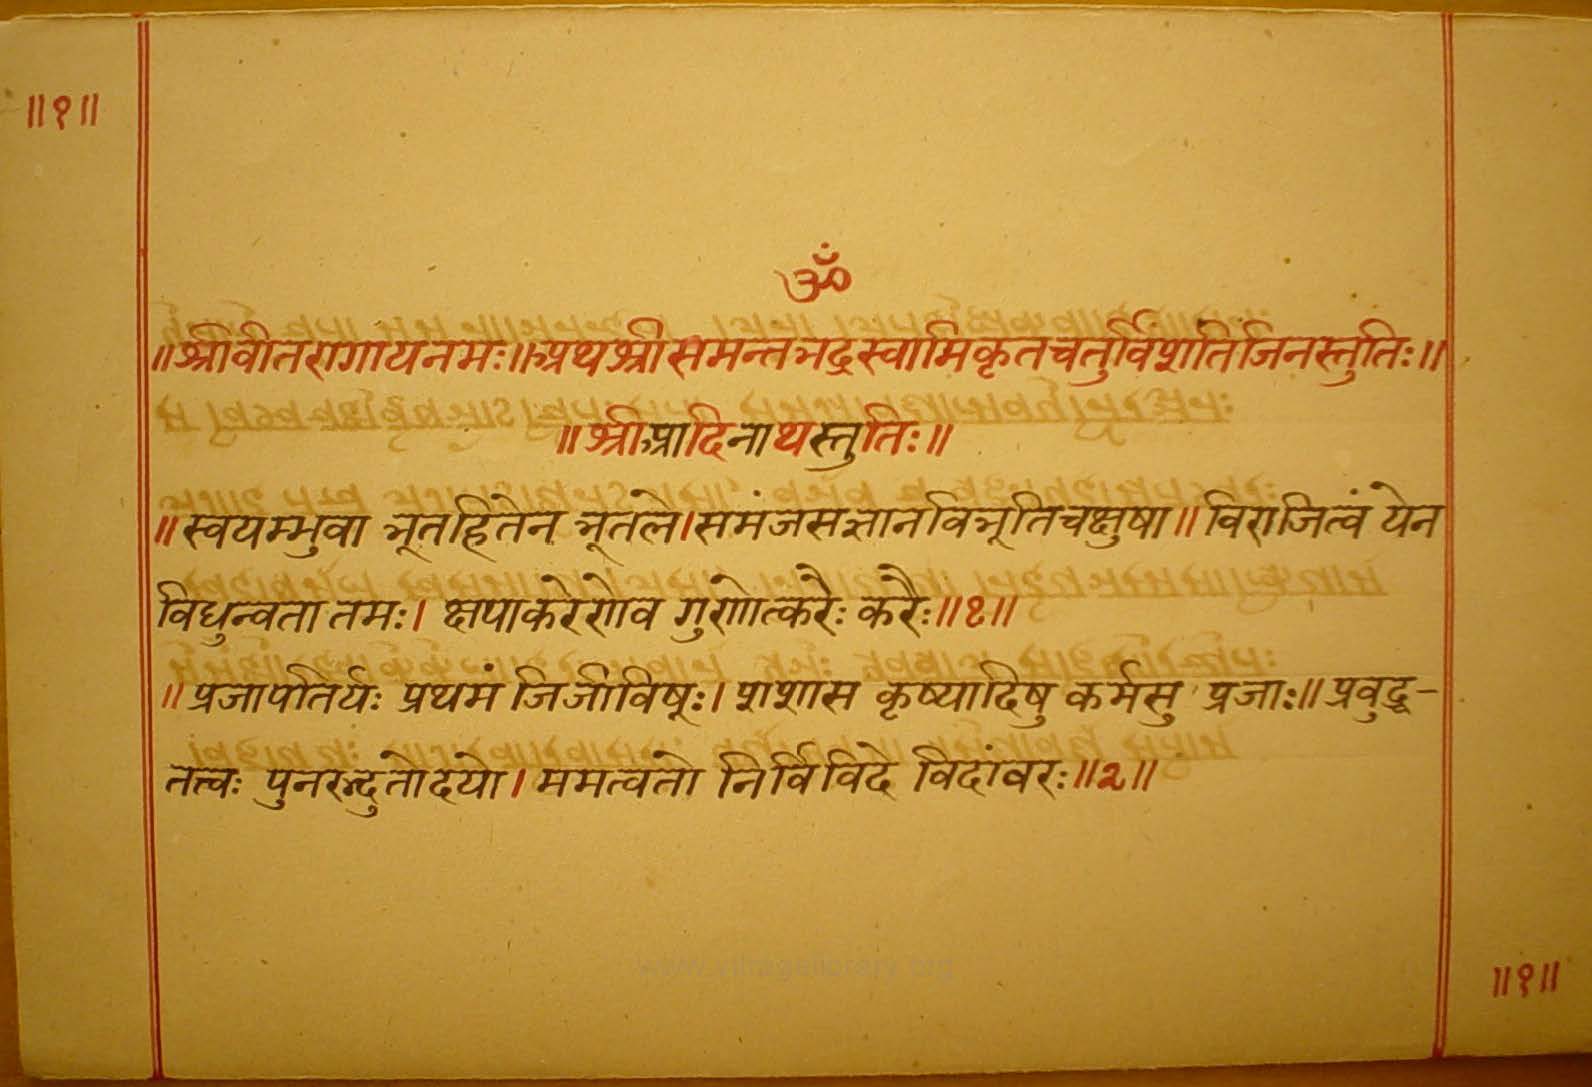 ॥१॥
ॐ
॥श्रीवीतरागायनमः॥अथश्रीसमन्तभद्रस्वामिकृतचतुर्विंशतिजिनस्तुतिः॥
॥श्रीआदिनाथस्तुतिः॥
॥स्वयम्भुवा भूतहितेन भूतले।समंजसज्ञानविभूतिचक्षुषा॥विराजित्वं येन
विधुन्वता तमः। क्षपाकरेणेव गुणोत्करैः करैः॥१॥
॥प्रजापतिर्यः प्रथमं जिजीविषूः। शशास कृष्यादिषु कर्मसु प्रजाः॥प्रवुद्ध-
तत्त्वः पुनरद्भुतोदयो।ममत्वतो निर्विविदे विदांवरः॥२॥
www.villagelibrary.org
॥१॥